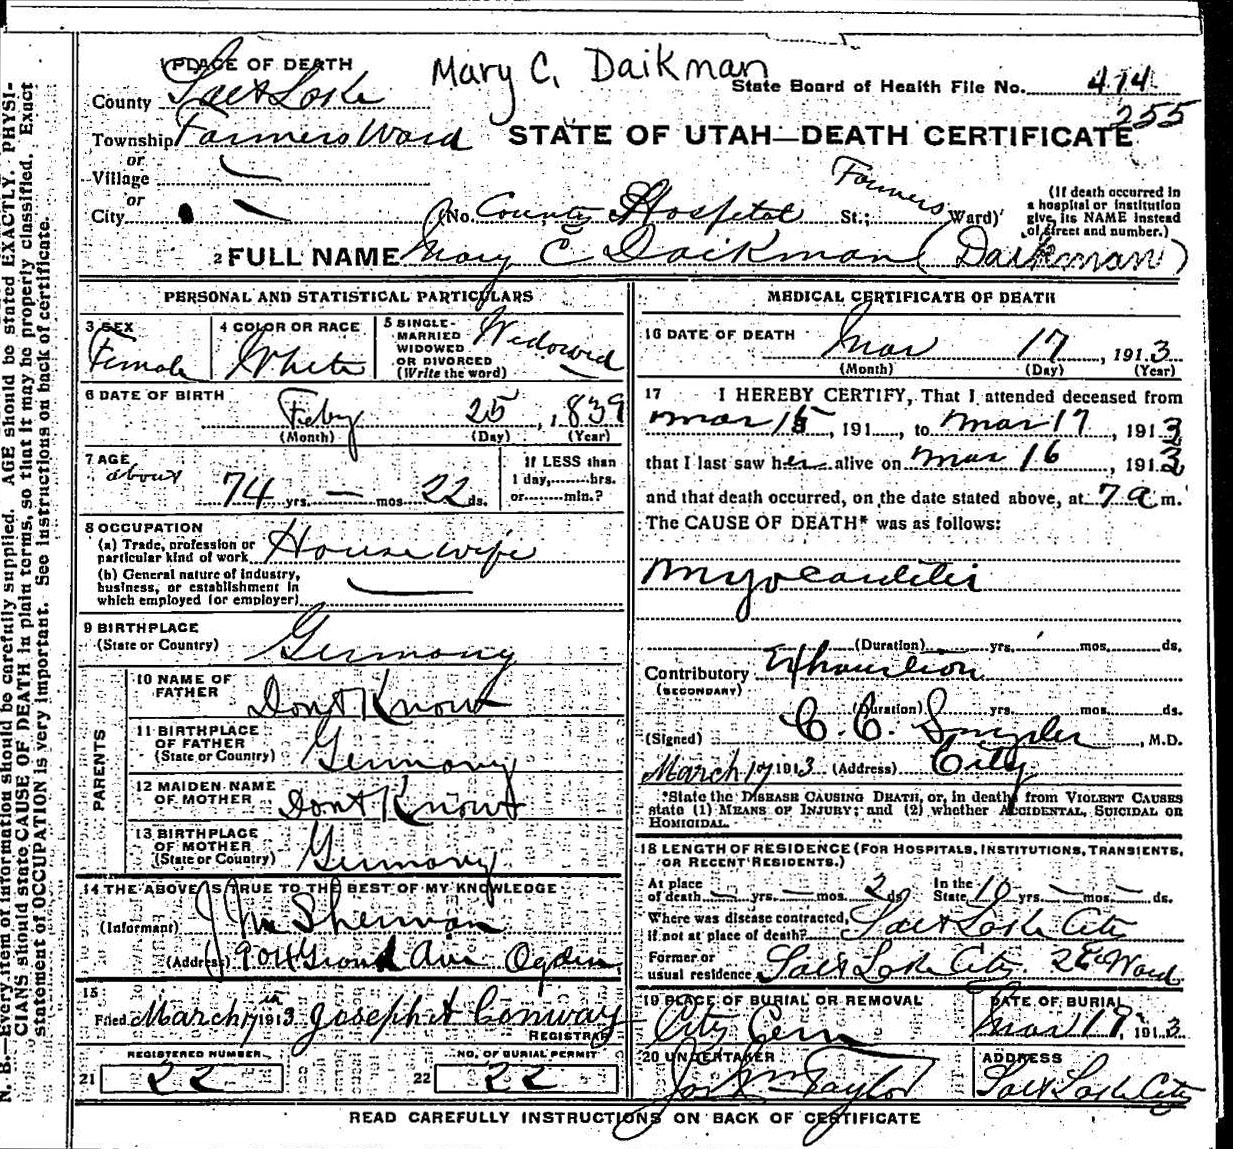 Mary C. Daikman
1 PLACE OF DEATH
State Board of Health File No. 414
255
County Salt Lake
Township Farmers Ward
STATE OF UTAH—DEATH CERTIFICATE
or
Village
or
City
(No. County Hospital St.; Farmers Ward)
(If death occurred in
a hospital or institution
give its NAME instead
of street and number.)
2 FULL NAME Mary C Daikman (Daikman)
PERSONAL AND STATISTICAL PARTICULARS
3 SEX
Female
4 COLOR OR RACE
White
5 SINGLE-
MARRIED
WIDOWED
OR DIVORCED
(Write the word)
Widowed
6 DATE OF BIRTH
Feby 25, 1839
(Month) (Day) (Year)
7 AGE
about
74 yrs. — mos. 22 ds.
If LESS than
1 day, hrs.
or min.?
8 OCCUPATION
(a) Trade, profession or
particular kind of work House wife
(b) General nature of industry,
business, or establishment in
which employed (or employer)
9 BIRTHPLACE
(State or Country) Germany
PARENTS
10 NAME OF
FATHER Dont Know
11 BIRTHPLACE
OF FATHER
(State or Country) Germany
12 MAIDEN NAME
OF MOTHER Dont Know
13 BIRTHPLACE
OF MOTHER
(State or Country) Germany
14 THE ABOVE IS TRUE TO THE BEST OF MY KNOWLEDGE
(Informant) J M Sherman
(Address) Grand Ave Ogden
15
Filed March 17 1913 Joseph H Conway
REGISTRAR
REGISTERED NUMBER
21 22
NO. OF BURIAL PERMIT
22 22
MEDICAL CERTIFICATE OF DEATH
16 DATE OF DEATH
Mar 17, 1913
(Month) (Day) (Year)
17 I HEREBY CERTIFY, That I attended deceased from
Mar 15, 191 , to Mar 17, 1913
that I last saw her alive on Mar 16, 1913
and that death occurred, on the date stated above, at 7 a m.
The CAUSE OF DEATH* was as follows:
Myocarditis
(Duration) yrs. mos. ds.
Contributory Exhaustion
(SECONDARY)
(Duration) yrs. mos. ds.
(Signed) C. C. Snyder, M.D.
March 17 1913 (Address) City
*State the DISEASE CAUSING DEATH, or, in deaths from VIOLENT CAUSES
state (1) MEANS OF INJURY; and (2) whether ACCIDENTAL, SUICIDAL OR
HOMICIDAL.
18 LENGTH OF RESIDENCE (FOR HOSPITALS, INSTITUTIONS, TRANSIENTS,
OR RECENT RESIDENTS.)
At place
of death — yrs. — mos. 2 ds.
In the
State 10 yrs. — mos. — ds.
Where was disease contracted,
if not at place of death? Salt Lake City
Former or
usual residence Salt Lake City. Ward
19 PLACE OF BURIAL OR REMOVAL
City Cem
DATE OF BURIAL
Mar 19, 1913
20 UNDERTAKER
Jos Wm Taylor
ADDRESS
Salt Lake City
READ CAREFULLY INSTRUCTIONS ON BACK OF CERTIFICATE
N. B.—Every item of information should be carefully supplied. AGE should be stated EXACTLY. PHYSI-
CIANS should state CAUSE OF DEATH in plain terms, so that it may be properly classified. Exact
statement of OCCUPATION is very important. See instructions on back of certificate.